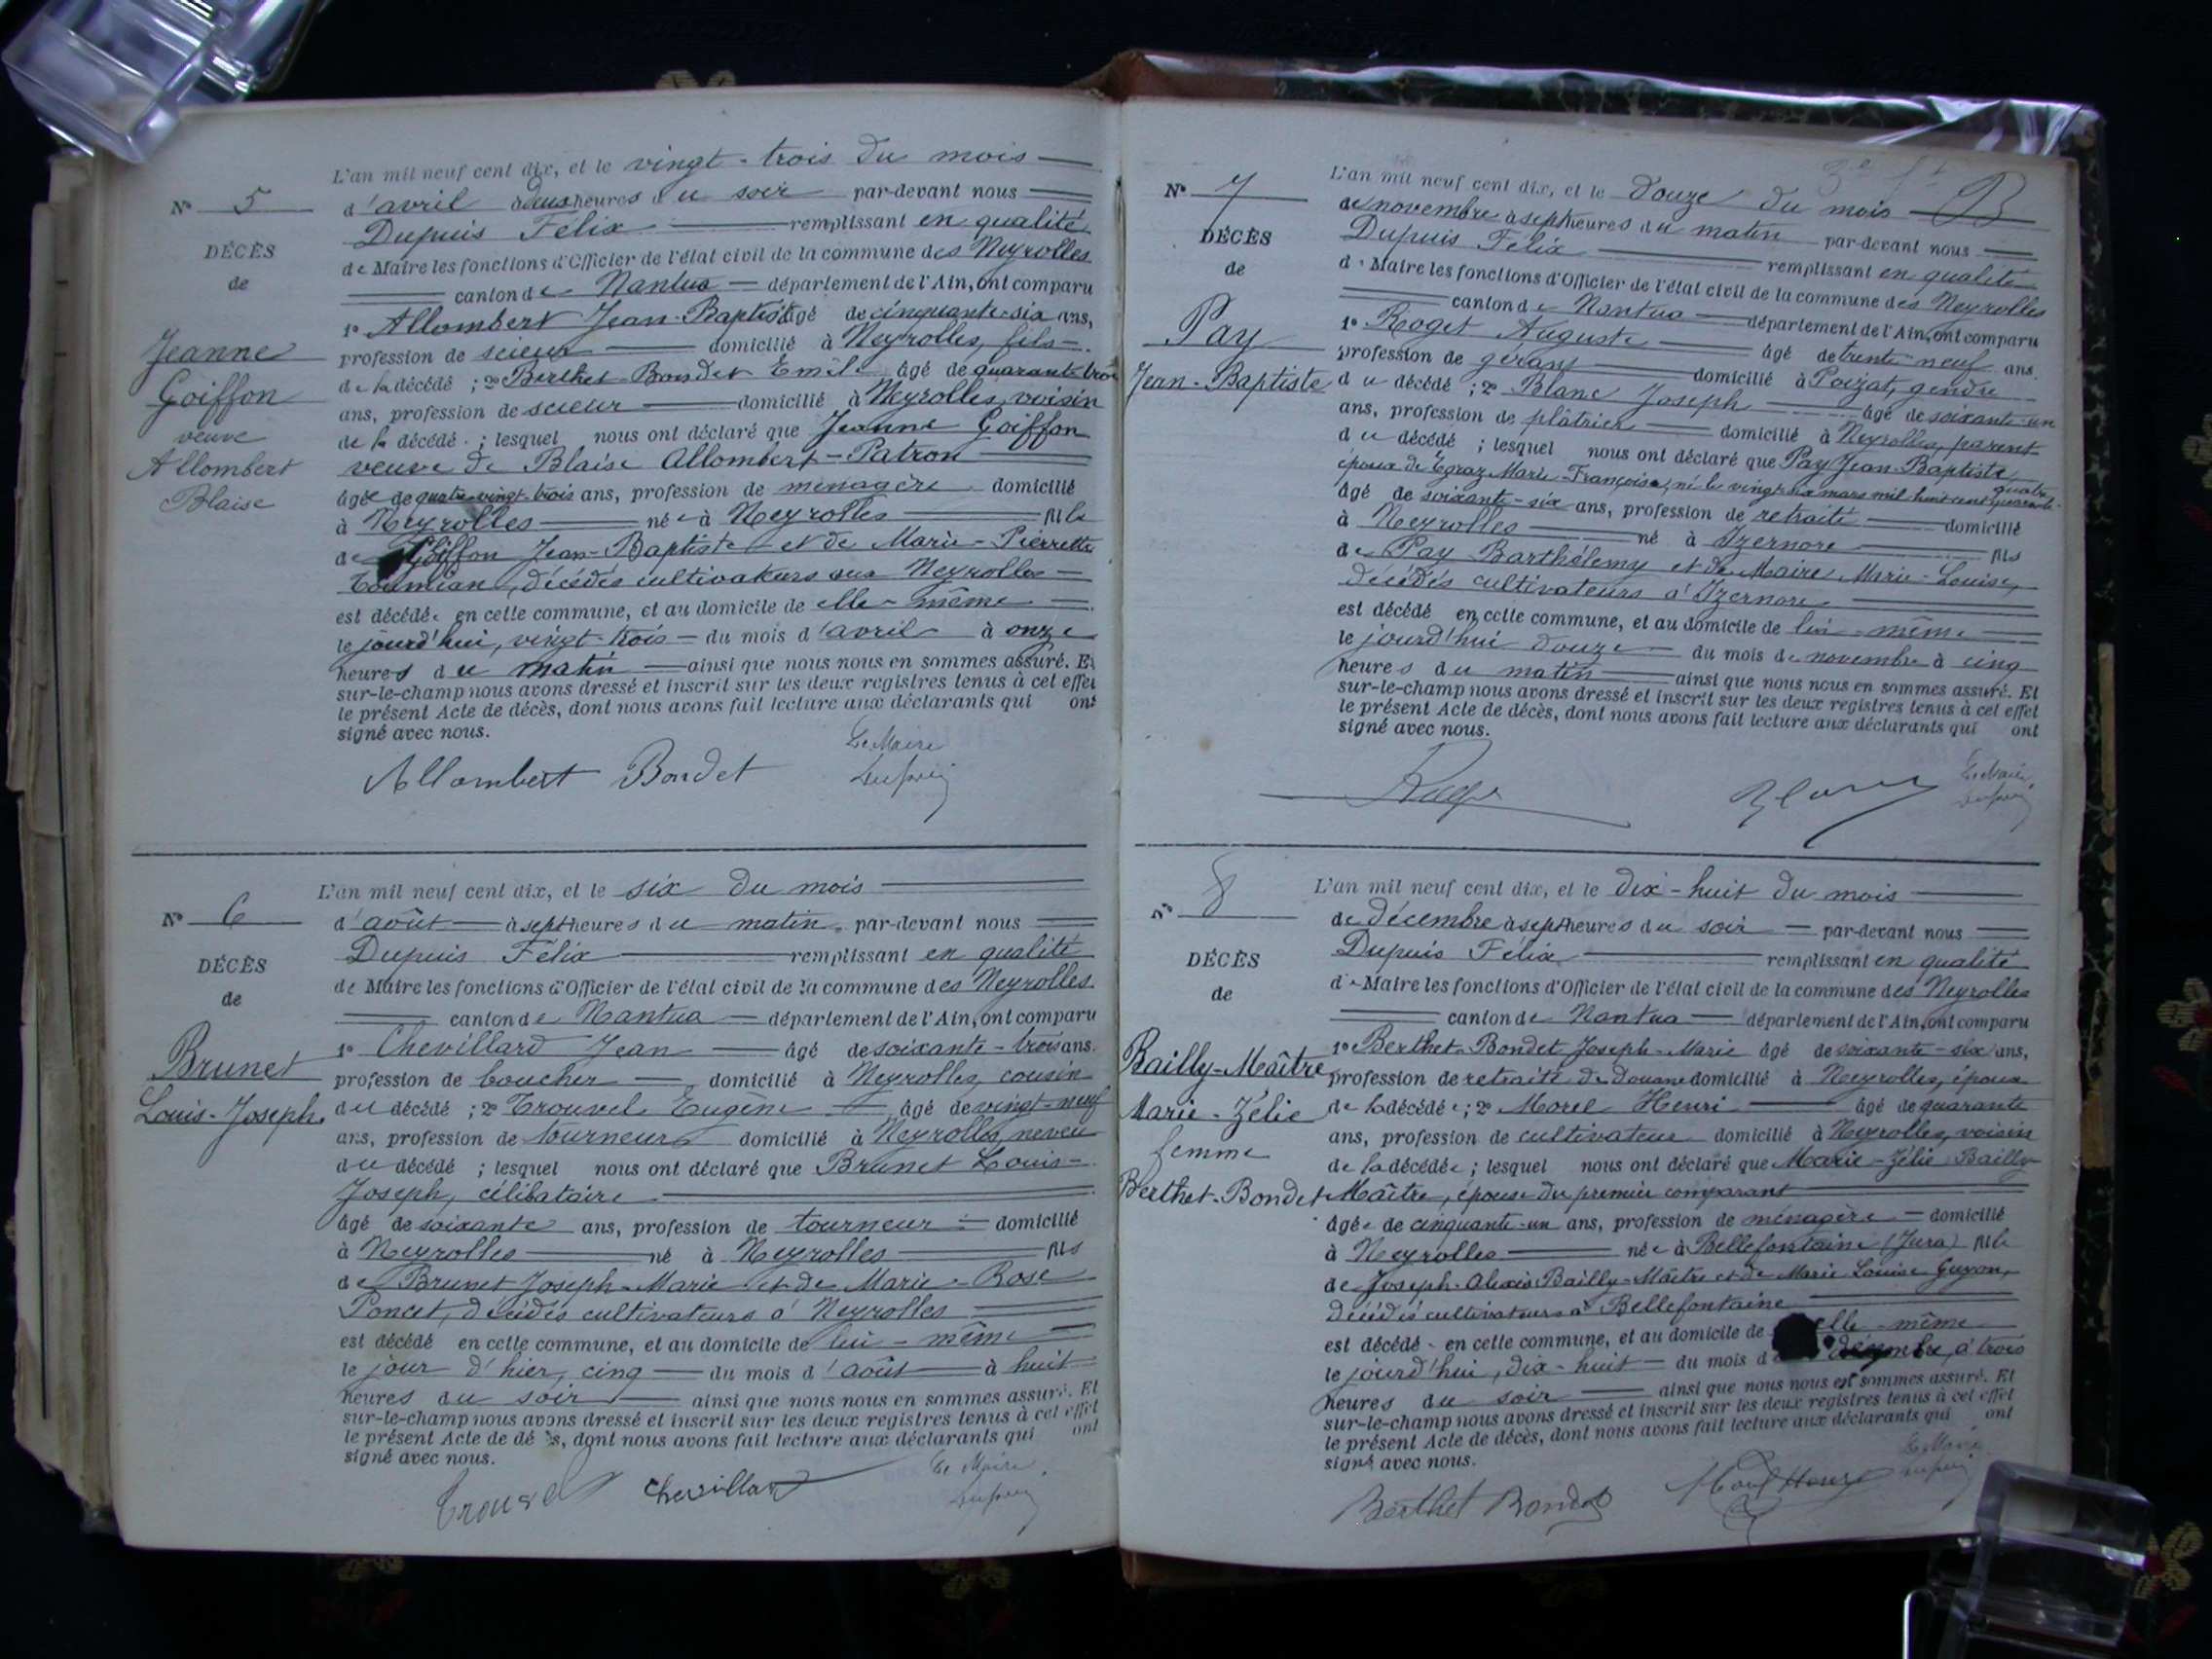 L'an mil neuf cent dix, et le vingt-trois du mois
N° 5
d'avril à deux heures du soir par-devant nous
Dupuis Félix remplissant en qualité
DÉCÈS
de Maire les fonctions d'Officier de l'état civil de la commune des Neyrolles
de
canton de Nantua département de l'Ain, ont comparu
1° Allombert Jean-Baptiste âgé de cinquante-six ans,
Jeanne
profession de scieur domicilié à Neyrolles, fils
Goiffon
de la décédé ; 2° Berthet-Bondet Emile âgé de quarante-trois
veuve
ans, profession de scieur domicilié à Neyrolles, voisin
Allombert
de la décédé ; lesquel nous ont déclaré que Jeanne Goiffon
Blaise
veuve de Blaise Allombert-Patron
âgée de quatre-vingt-trois ans, profession de ménagère domicilié
à Neyrolles née à Neyrolles fille
de Goiffon Jean-Baptiste et de Marie-Pierrette
décédés cultivateurs aux Neyrolles
est décédée en cette commune, et au domicile de elle-même
le jourd'hui, vingt-trois du mois d'avril à onze
heures du matin ainsi que nous nous en sommes assuré. Et
sur-le-champ nous avons dressé et inscrit sur les deux registres tenus à cet effet
le présent Acte de décès, dont nous avons fait lecture aux déclarants qui ont
signé avec nous.
Allombert Bondet Le Maire
Dupuis
L'an mil neuf cent dix, et le six du mois
N° 6
d'août à sept heures du matin par-devant nous
Dupuis Félix remplissant en qualité
DÉCÈS
de Maire les fonctions d'Officier de l'état civil de la commune des Neyrolles
de
canton de Nantua département de l'Ain, ont comparu
1° Chevillard Jean âgé de soixante-trois ans.
Brunet
profession de boucher domicilié à Neyrolles, cousin
Louis-Joseph
du décédé ; 2° Trouvel Eugène âgé de vingt-neuf
ans, profession de tourneur domicilié à Neyrolles, neveu
du décédé ; lesquel nous ont déclaré que Brunet Louis-
Joseph, célibataire
âgé de soixante ans, profession de tourneur domicilié
à Neyrolles né à Neyrolles fils
de Brunet Joseph-Marie et de Marie-Rose
Poncet, décédés cultivateurs à Neyrolles
est décédé en cette commune, et au domicile de lui-même
le jour d'hier, cinq du mois d'août à huit
heures du soir ainsi que nous nous en sommes assuré. Et
sur-le-champ nous avons dressé et inscrit sur les deux registres tenus à cet effet
le présent Acte de dé s, dont nous avons fait lecture aux déclarants qui ont
signé avec nous.
Trouvel Chevillard Le Maire
Dupuis
L'an mil neuf cent dix, et le douze du mois
N° 7
de novembre à sept heures du matin par-devant nous
DÉCÈS
Dupuis Félix remplissant en qualité
de
de Maire les fonctions d'Officier de l'état civil de la commune des Neyrolles
canton de Nantua département de l'Ain, ont comparu
Pay
1° Roget Auguste âgé de trente neuf ans.
Jean-Baptiste
profession de gérant domicilié à Poizat, gendre
du décédé ; 2° Blanc Joseph âgé de soixante-un
ans, profession de plâtrier domicilié à Neyrolles, parent
du décédé ; lesquel nous ont déclaré que Pay Jean-Baptiste,
époux de Egraz Marie-Françoise, né le vingt-six mars mil huit cent quarante-quatre
âgé de soixante-six ans, profession de retraité domicilié
à Neyrolles né à Izernore fils
de Pay Barthélemy et de Maire Marie-Louise,
décédés cultivateurs à Izernore
est décédé en cette commune, et au domicile de lui-même
le jourd'hui douze du mois de novembre à cinq
heures du matin ainsi que nous nous en sommes assuré. Et
sur-le-champ nous avons dressé et inscrit sur les deux registres tenus à cet effet
le présent Acte de décès, dont nous avons fait lecture aux déclarants qui ont
signé avec nous.
Blanc Le Maire
Dupuis
L'an mil neuf cent dix, et le dix-huit du mois
N° 8
de décembre à sept heures du soir par-devant nous
DÉCÈS
Dupuis Félix remplissant en qualité
de
de Maire les fonctions d'Officier de l'état civil de la commune des Neyrolles
canton de Nantua département de l'Ain, ont comparu
Bailly-Maître
1° Berthet-Bondet Joseph-Marie âgé de soixante-six ans,
profession de retraité de Douane domicilié à Neyrolles, époux
Marie-Zélie
de la décédée ; 2° Morel Henri âgé de quarante
femme
ans, profession de cultivateur domicilié à Neyrolles, voisin
de la décédée ; lesquel nous ont déclaré que Marie-Zélie Bailly-
Berthet-Bondet
Maître, épouse du premier comparant
âgée de cinquante-un ans, profession de ménagère domicilié
à Neyrolles née à Bellefontaine (Jura) fille
de Joseph-Alexis Bailly-Maître et de Marie Louise Guyon,
décédés cultivateurs à Bellefontaine
est décédé en cette commune, et au domicile de elle-même
le jourd'hui, dix-huit du mois de décembre, à trois
heures du soir ainsi que nous nous en sommes assuré. Et
sur-le-champ nous avons dressé et inscrit sur les deux registres tenus à cet effet
le présent Acte de décès, dont nous avons fait lecture aux déclarants qui ont
signé avec nous.
Berthet Bondet Morel Henri Le Maire
Dupuis